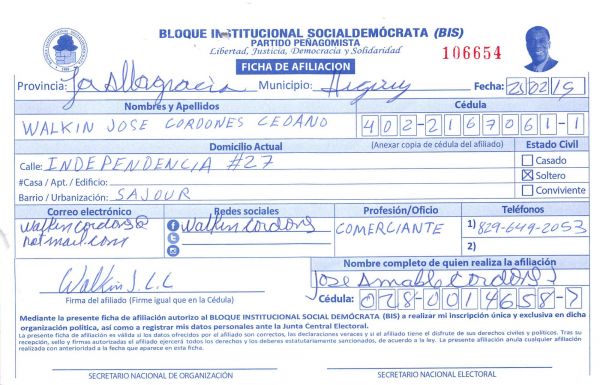 BLOQUE INSTITUCIONAL SOCIALDEMÓCRATA (BIS)
PARTIDO PEÑAGOMISTA
Libertad, Justicia, Democracia y Solidaridad
106654
FICHA DE AFILIACION
Provincia: La Altagracia Municipio: Higüey Fecha:
Nombres y Apellidos Cédula
WALKIN JOSE CORDONES CEDANO 402-2167061-1
Domicilio Actual (Anexar copia de cédula del afiliado) Estado Civil
Calle: INDEPENDENCIA #27 Casado
#Casa / Apt. / Edificio: Soltero
Barrio / Urbanización: SAJOUR Conviviente
Correo electrónico Redes sociales Profesión/Oficio Teléfonos
Walkincordos@ Walkincordons COMERCIANTE 1) 829-649-2053
hotmail.com 2)
Nombre completo de quien realiza la afiliación
Walkin J. C. C Jose Amable Cordones
Firma del afiliado (Firme igual que en la Cédula) Cédula: 028-0014658-7
Mediante la presente ficha de afiliación autorizo al BLOQUE INSTITUCIONAL SOCIAL DEMÓCRATA (BIS) a realizar mi inscripción única y exclusiva en dicha
organización política, así como a registrar mis datos personales ante la Junta Central Electoral.
La presente ficha de afiliación es válida si los datos ofrecidos por el afiliado son correctos, las declaraciones veraces y si el afiliado tiene el disfrute de sus derechos civiles y políticos. Tras su
recepción, sello y firmas autorizadas el afiliado ejercerá todos los derechos y los deberes estatutariamente sancionados, de acuerdo a la ley. La presente afiliación anula cualquier afiliación
realizada con anterioridad a la fecha que aparece en esta ficha.
SECRETARIO NACIONAL DE ORGANIZACIÓN SECRETARIO NACIONAL ELECTORAL